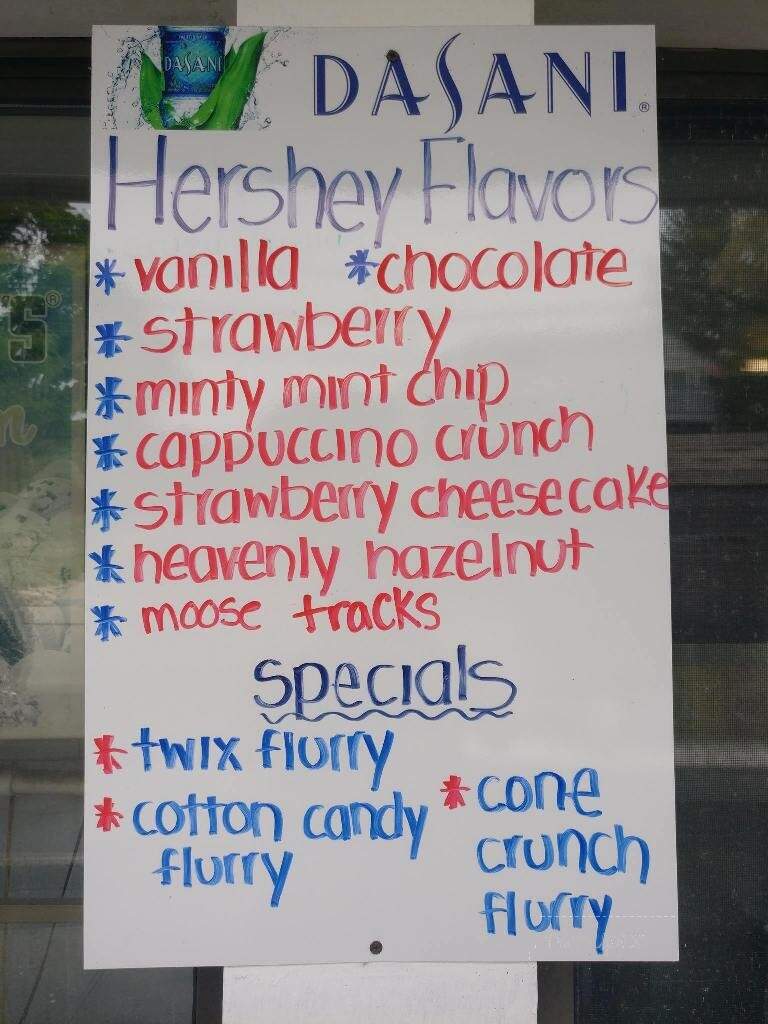 DASANI
DASANI®
Hershey Flavors
* vanilla * chocolate
* strawberry
* minty mint chip
* cappuccino crunch
* strawberry cheesecake
* heavenly hazelnut
* moose tracks
specials
* twix flurry
* cotton candy flurry
* cone crunch flurry
'S®